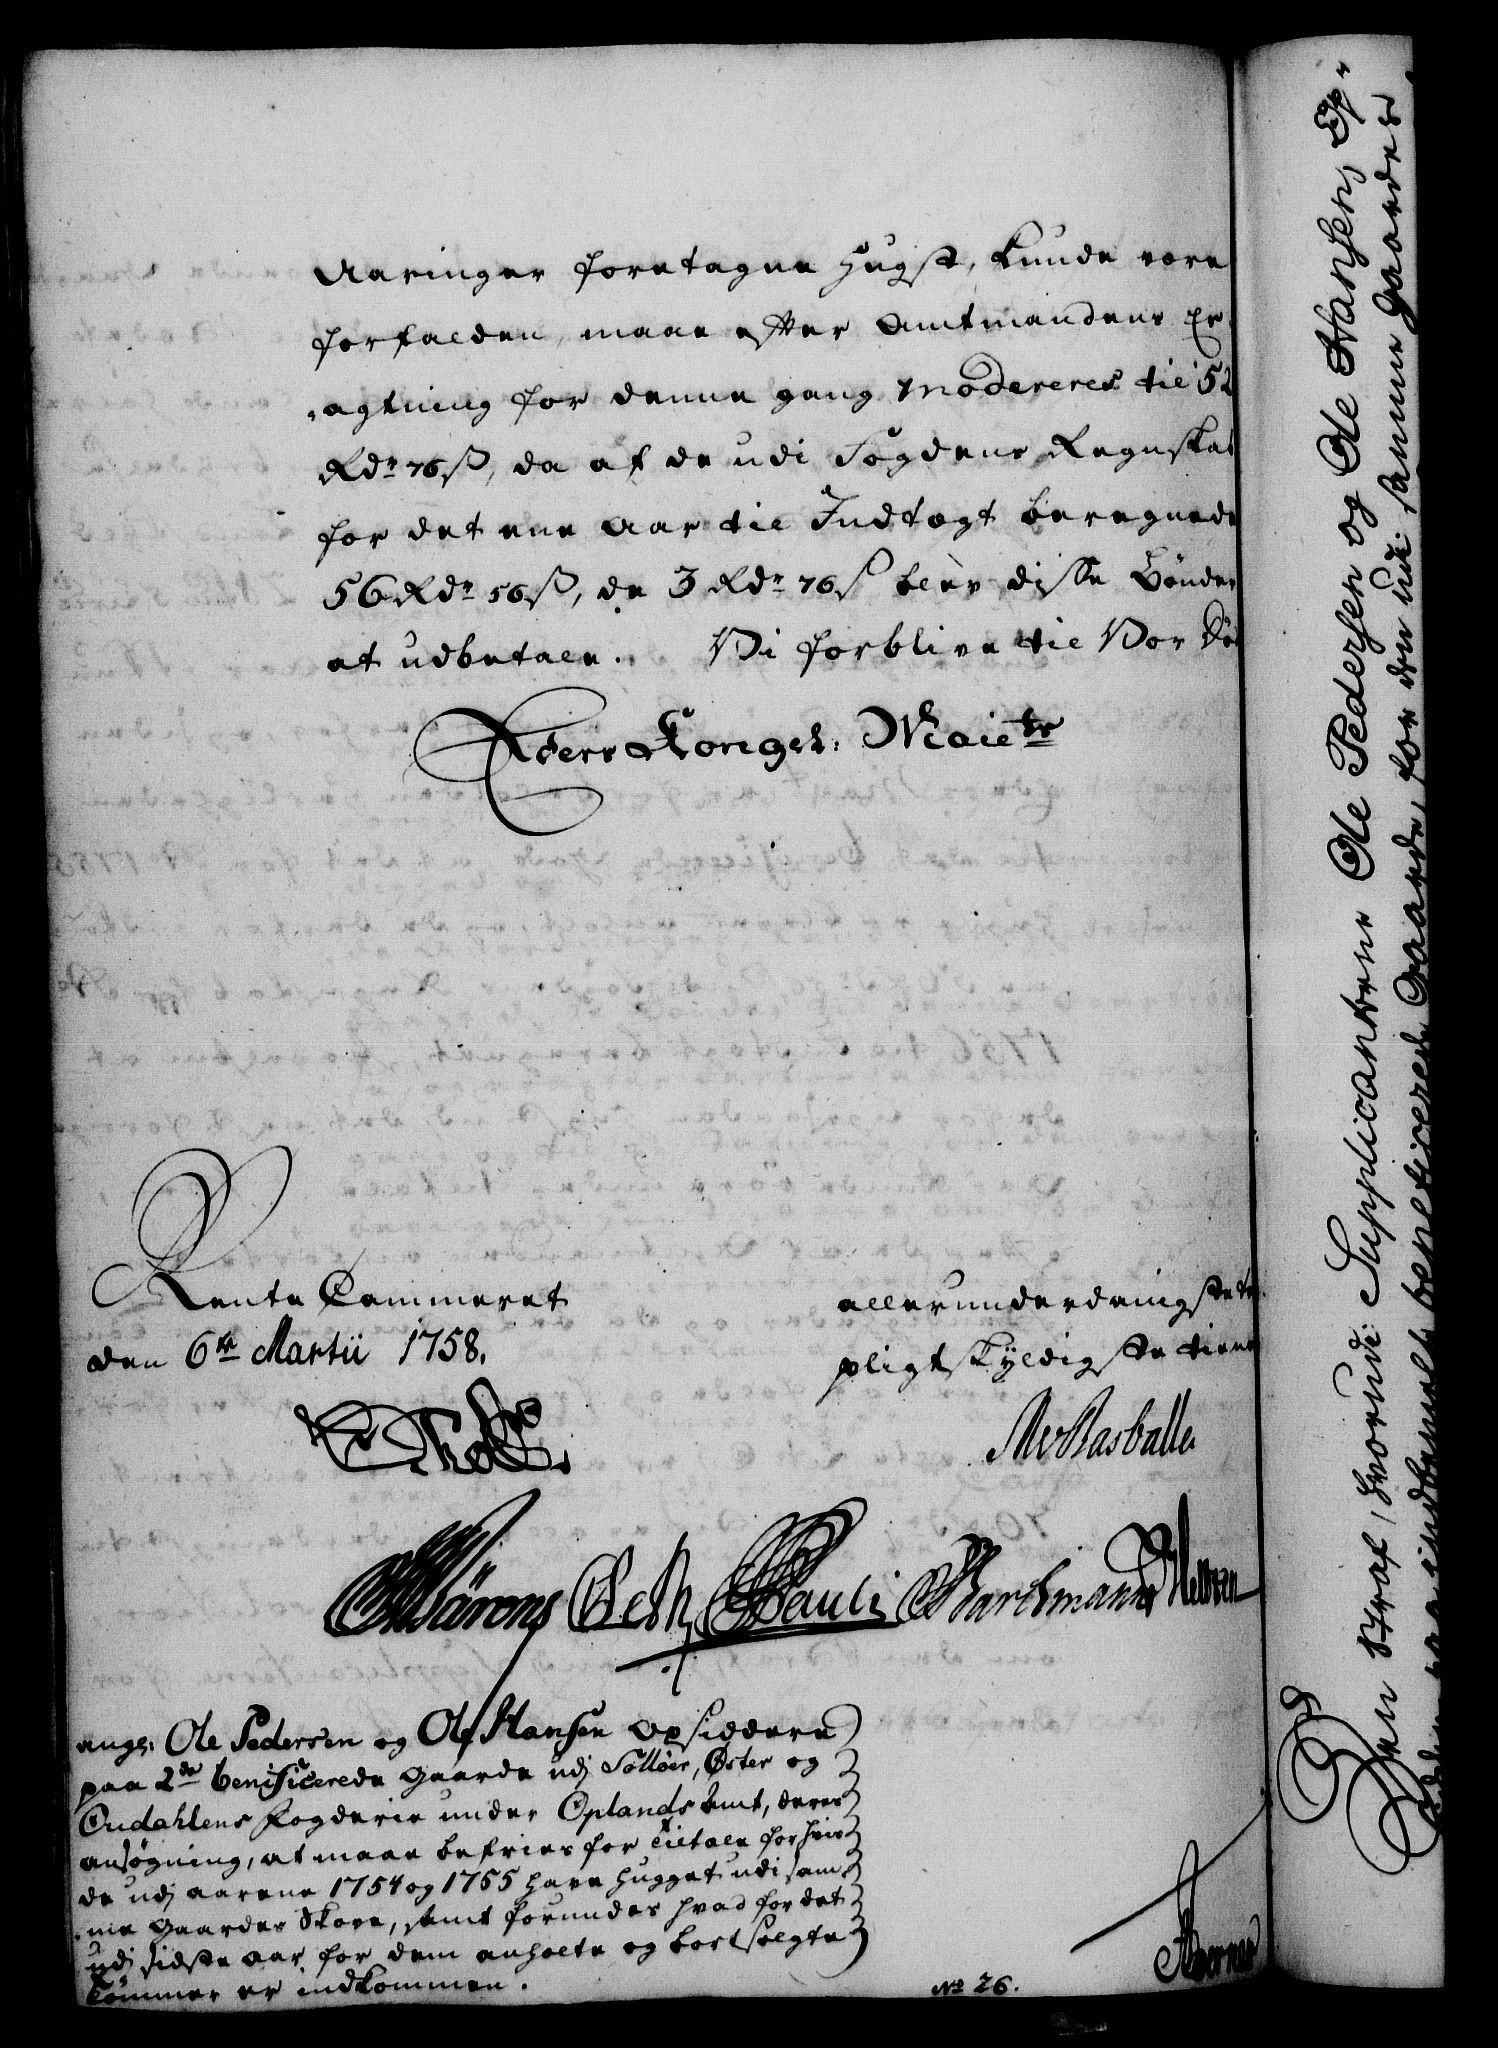 Aaringer foretagne Hugst, kunde være
forfalden, maae efter Amtmandens er-
agtning for denne gang modereres til 52
Rdr 76 ß, da af de udi Fogdens Regnskab
for det ene Aar til Indtægt beregnede
56 Rdr 56 ß, de 3 Rdr 76 ß blev disse Bønder
at udbetale. Vi forblive til Vor Død
Eders Kongel: Maiets
Rente Cammeret
den 6te Martii 1758.
allerunderdanigste
pligtskyldigste tiene
Rasballe
Pauli Barthmann
ang: Ole Pedersen og Ole Hansen Opsiddere
paa 2de benificerede Gaarde udi Solløer, Øster og
Oudahlens Fogderie under Oplands Amt, deres
ansøgning, at maae befries for Tiltale for hvis
de udi Aarene 1754 og 1755 have hugget udi sam-
me Gaardes Skove, samt forundes hvad for det
udi sidste Aar for dem anholte og bortsolgte
Tømmer er indkommen.
No 26.
Den Straf, hvorudi Supplicanterne Ole Pedersen og Ole Hansen, Op-
paa indbemelte beneficerede Gaarde, for den udi samme Gaardes